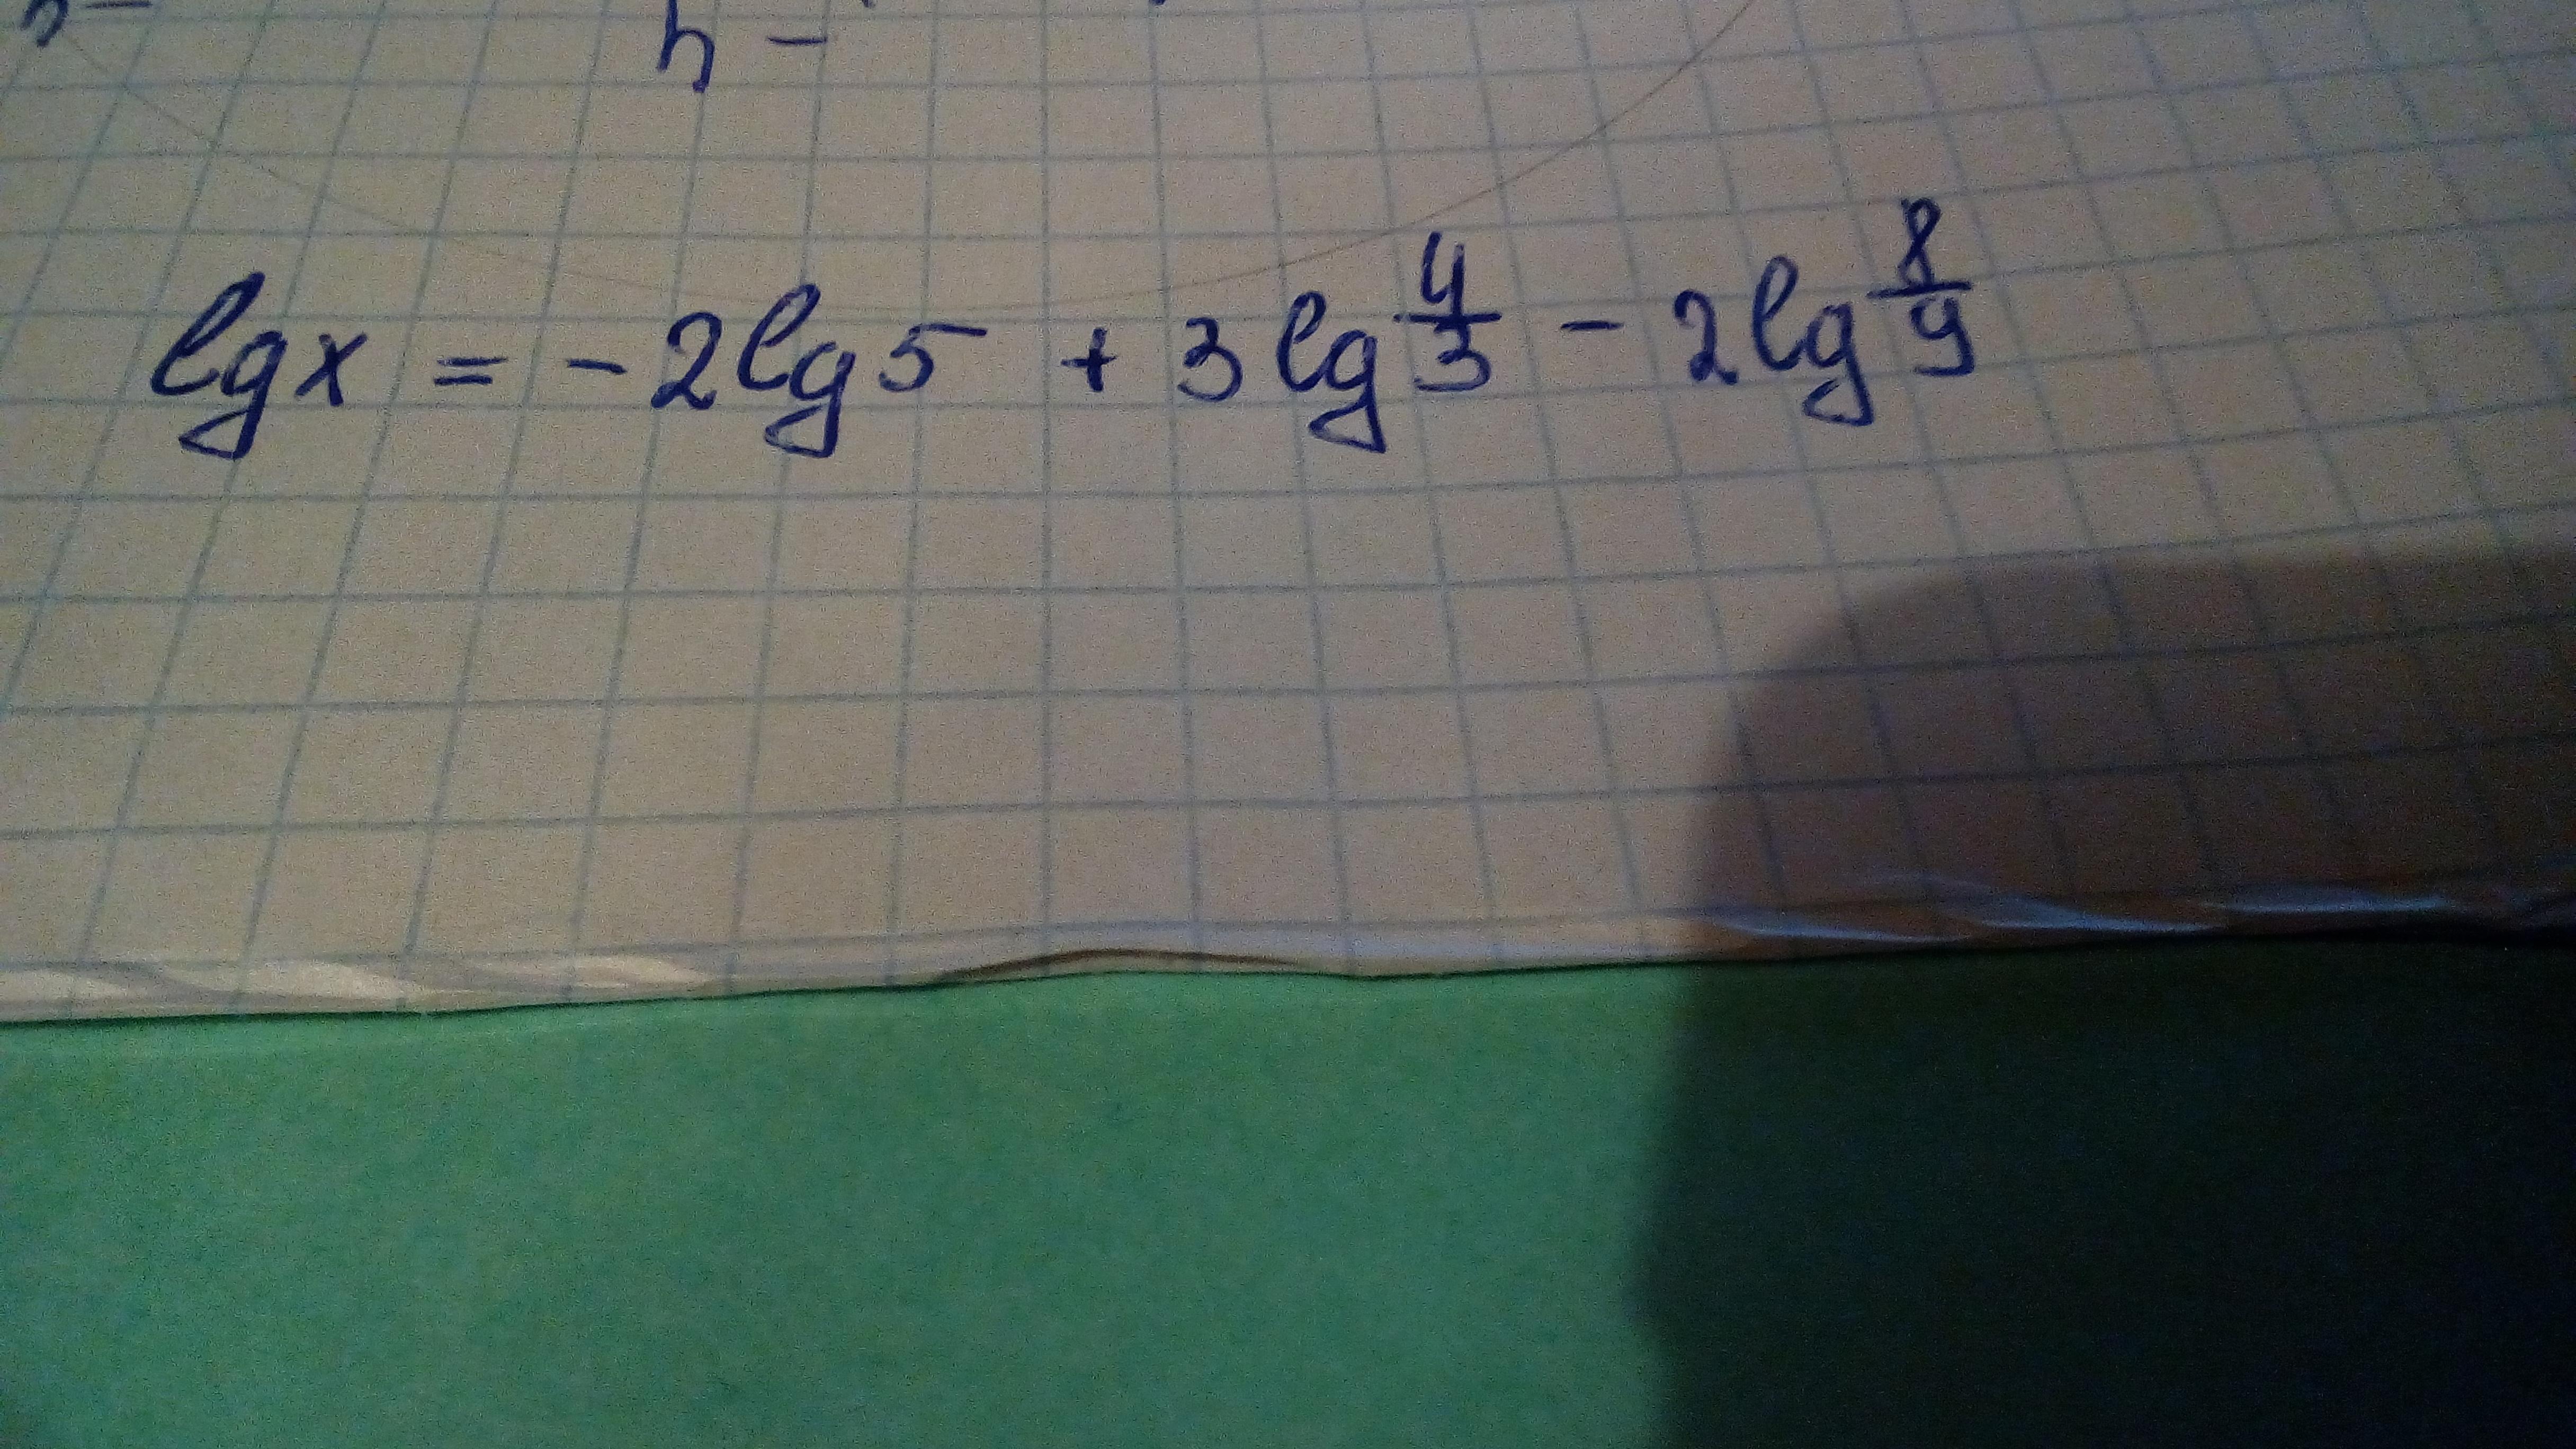 n -
lg x = - 2 lg 5 + 3 lg 4/3 - 2 lg 8/9